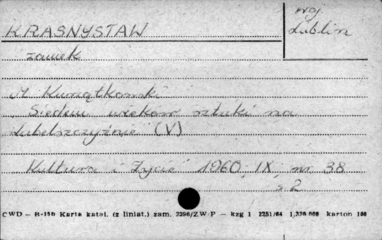 KRASNYSTAW
woj
Lublin
zamek
H. Kurzątkowski
Siedem wieków sztuki na
Lubelszczyźnie (V)
Kultura i Życie 1960, IX, nr 38
s. 2
CWD — B-15b Karta katal. (z liniat.) zam. 2296/ZW-P — kzg 1 1251/64 1,350.000 karton 180